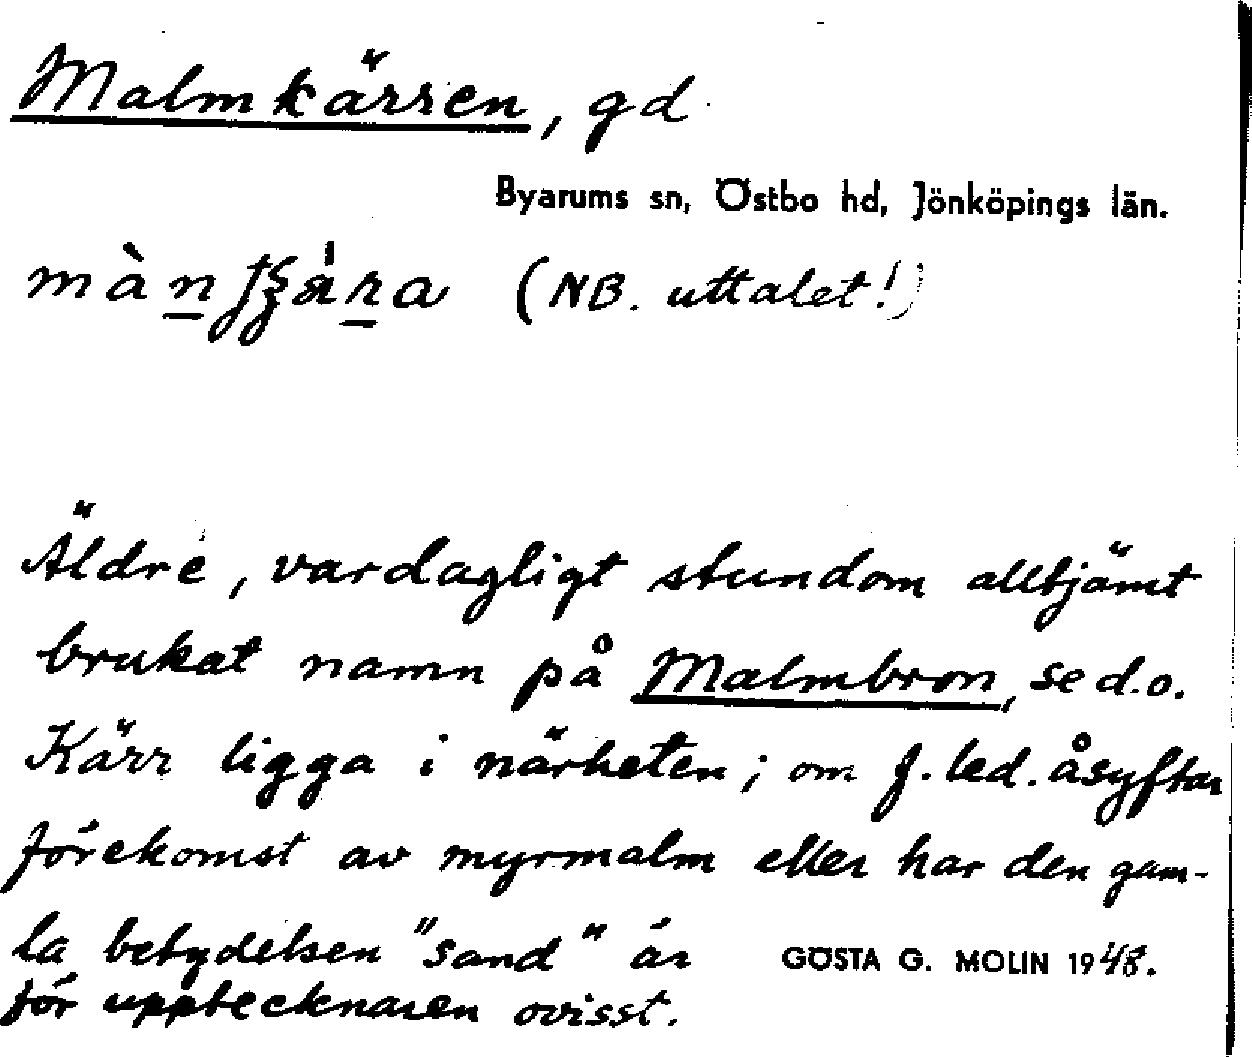 Malmkärren, gd
Byarums sn, Östbo hd, Jönköpings län.
(NB. uttalet!)
Äldre, vardagligt stundom alltjämt
brukat namn på Malmbron, se d.o.
Kärr ligga i närheten; om f. led. åsyftar
förekomst av myrmalm eller har den gam-
la betydelsen "sand" är
GÖSTA G. MOLIN 1948.
för upptecknaren ovisst.